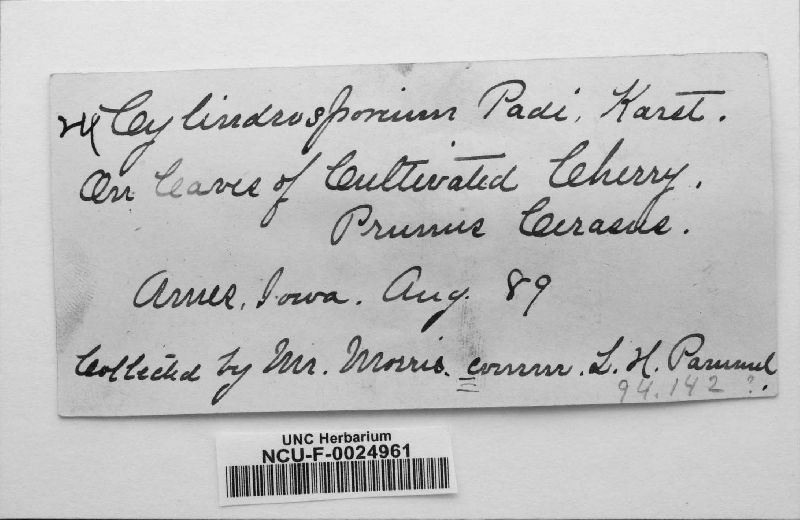 Cylindrosporium Padi, Karst.
On leaves of Cultivated Cherry.
Prunus Cerasus.
Ames, Iowa. Aug. 89
Collected by Mr. Morris. comm. L. H. Pammel
94.142 ?.
UNC Herbarium
NCU-F-0024961